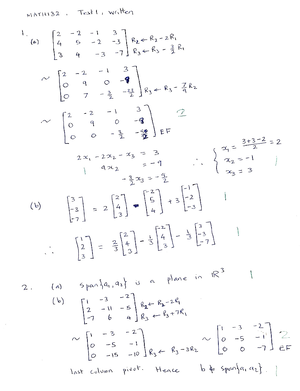 MATH1132. Test 1, written
1.
(a) [2 -2 -1 3; 4 5 -2 -3; 3 4 -3 -7] R₂ ← R₂ - 2R₁ R₃ ← R₃ - 3/2 R₁
~ [2 -2 -1 3; 0 9 0 -9; 0 7 -3/2 -23/2] R₃ ← R₃ - 7/9 R₂
~ [2 -2 -1 3; 0 9 0 -9; 0 0 -3/2 -9/2] EF 2
2x₁ - 2x₂ - x₃ = 3
1 9x₂ = -9
-3/2 x₃ = -9/2
∴ { x₁ = (3+3-2)/2 = 2
x₂ = -1
x₃ = 3
1
(b) [3; -3; -7] = 2 [2; 4; 3] - [-2; 5; 4] + 3 [-1; -2; -3] 1
∴ [1; 2; 3] = 2/3 [2; 4; 3] - 1/3 [-2; 5; 4] - 1/3 [3; -3; -7] 1
2. (a) span{a₁, a₂} is a plane in ℝ³ 1
(b) [1 -3 -2; 2 -11 -5; -7 6 4] R₂ ← R₂ - 2R₁ R₃ ← R₃ + 7R₁ 1
~ [1 -3 -2; 0 -5 -1; 0 -15 -10] R₃ ← R₃ - 3R₂ ~ [1 -3 -2; 0 -5 -1; 0 0 -7] 2 EF
last column pivot. Hence b ∉ span{a₁, a₂}. 1